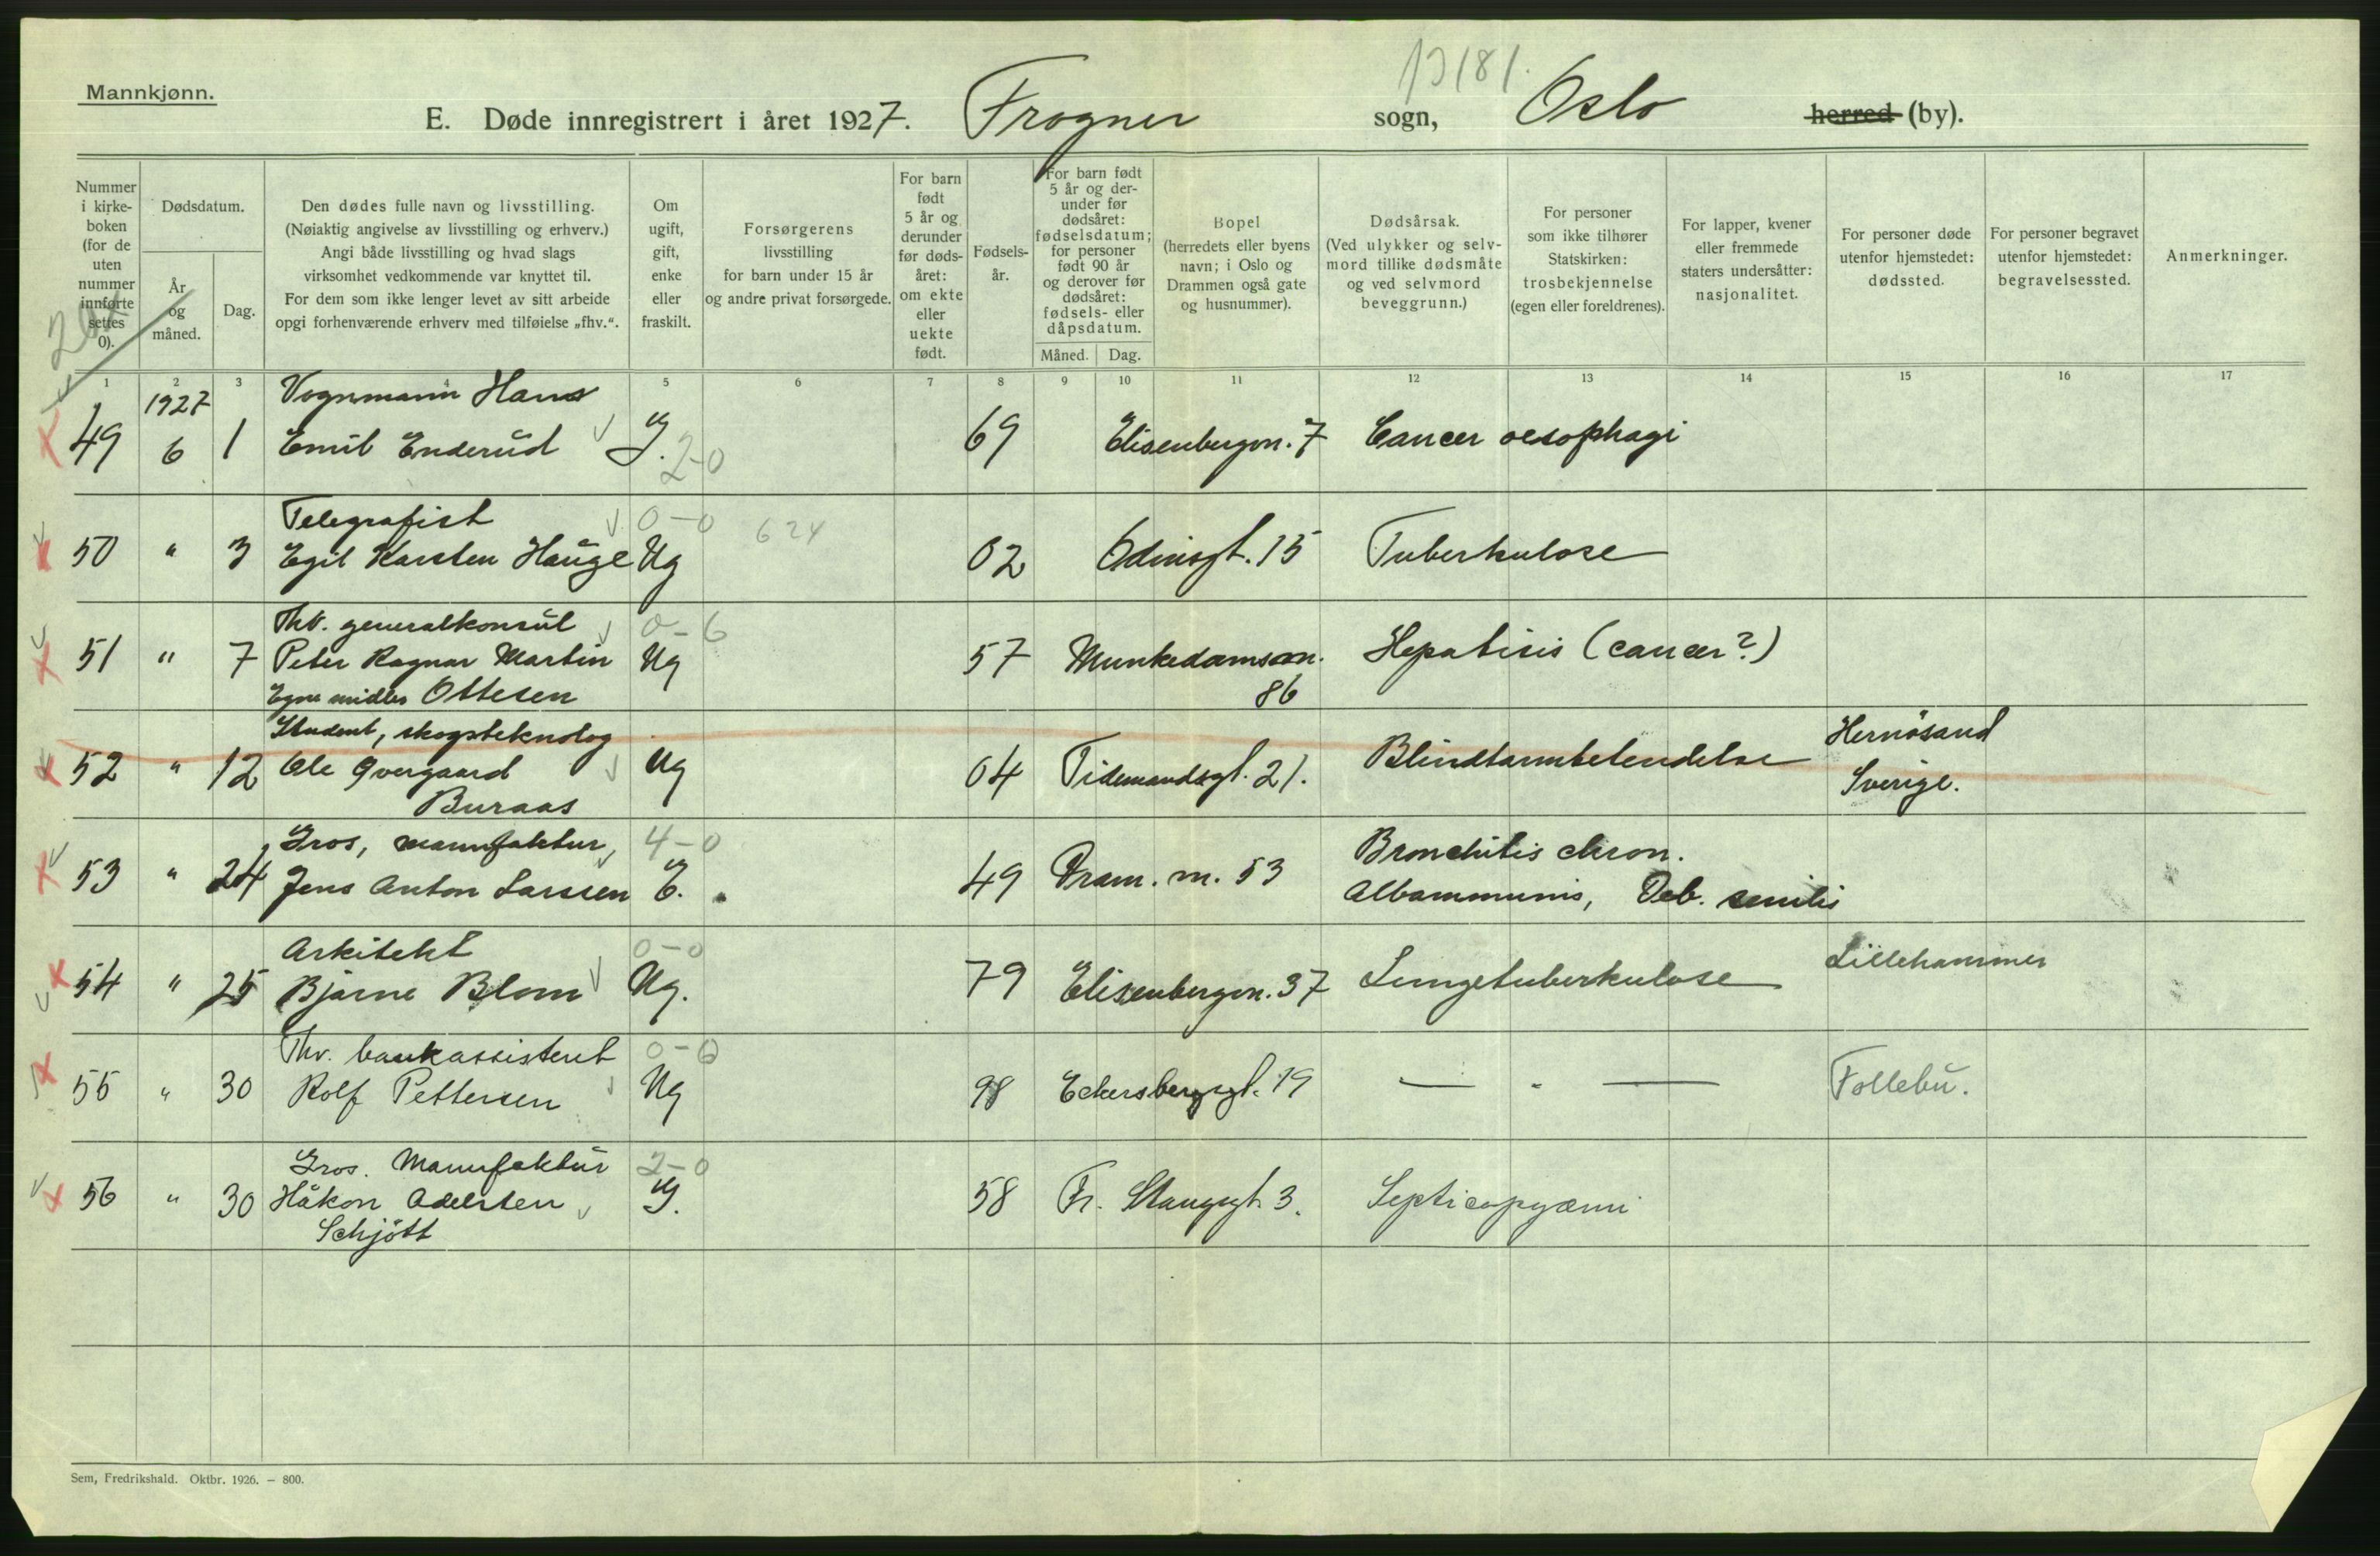 Mannkjønn.
13181.
E. Døde innregistrert i året 1927. Frogner sogn, Oslo herred (by).
Nummer i kirkeboken (for de uten nummer innførte settes 0).
Dødsdatum.
År og måned.
Dag.
Den dødes fulle navn og livsstilling.
(Nøiaktig angivelse av livsstilling og erhverv.)
Angi både livsstilling og hvad slags
virksomhet vedkommende var knyttet til.
For dem som ikke lenger levet av sitt arbeide
opgi forhenværende erhverv med tilføielse „fhv.“.
Om ugift, gift, enke eller fraskilt.
Forsørgerens
livsstilling
for barn under 15 år
og andre privat forsørgede.
For barn født 5 år og derunder før dødsåret: om ekte eller uekte født.
Fødsels-
år.
For barn født
5 år og der-
under før
dødsåret:
fødselsdatum;
for personer
født 90 år
og derover før
dødsåret:
fødsels- eller
dåpsdatum.
Måned. Dag.
Bopel
(herredets eller byens
navn; i Oslo og
Drammen også gate
og husnummer).
Dødsårsak.
(Ved ulykker og selv-
mord tillike dødsmåte
og ved selvmord
beveggrunn.)
For personer
som ikke tilhører
Statskirken:
trosbekjennelse
(egen eller foreldrenes).
For lapper, kvener
eller fremmede
staters undersåtter:
nasjonalitet.
For personer døde
utenfor hjemstedet:
dødssted.
For personer begravet
utenfor hjemstedet:
begravelsessted.
Anmerkninger.
1 2 3 4 5 6 7 8 9 10 11 12 13 14 15 16 17
1927 Vognmann Hans
49 6 1 Emil Enderud G. 2-0 69 Elisenbergvn. 7 Cancer oesophagi
Telegrafist 0-0 624
50 " 3 Egil Karsten Hauge Ug 02 Odinsgt. 15 Tuberkulose
Fhv. generalkonsul 0-6
51 " 7 Peter Ragnar Martin Ug 57 Munkedamsvn. 86 Hepatisis (cancer?)
Egne midler Ottesen
Student, skogsteknolog
52 " 12 Ole Overgaard Ug 04 Tidemandsgt. 21. Blindtarmbetendelse Hernösand Sverige.
Buraas
Gros, manufaktur, 4-0
53 " 24 Jens Anton Larssen E. 49 Dram. vn. 53 Bronchitis chron.
Albammunis, Deb. senilis
Arkitekt 0-0
54 " 25 Bjarne Blom Ug. 79 Elisenbergvn. 37 Lungetuberkulose Lillehammer
Fhv. bankassistent 0-0
55 " 30 Rolf Pettersen Ug 98 Eckersbergsgt. 19 — " — Follebu.
Gros. Manufaktur 2-0
56 " 30 Håkon Adelsten G. 58 Fr. Stangsgt. 3. Septicopyæmi
Schjött
Sem, Fredrikshald. Oktbr. 1926. — 800.